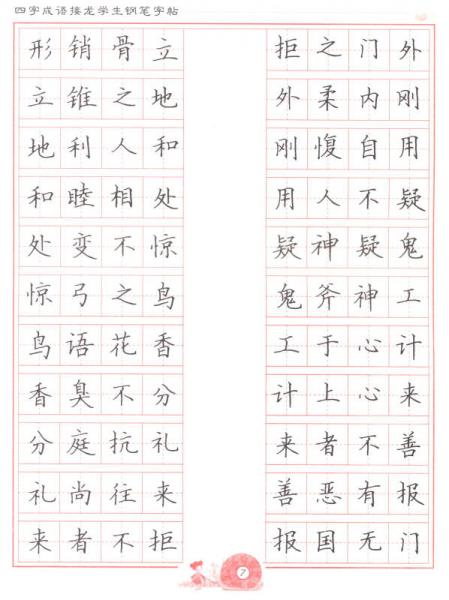 四字成语接龙学生钢笔字帖
形销骨立
立锥之地
地利人和
和睦相处
处变不惊
惊弓之鸟
鸟语花香
香臭不分
分庭抗礼
礼尚往来
来者不拒
拒之门外
外柔内刚
刚愎自用
用人不疑
疑神疑鬼
鬼斧神工
工于心计
计上心来
来者不善
善恶有报
报国无门
7